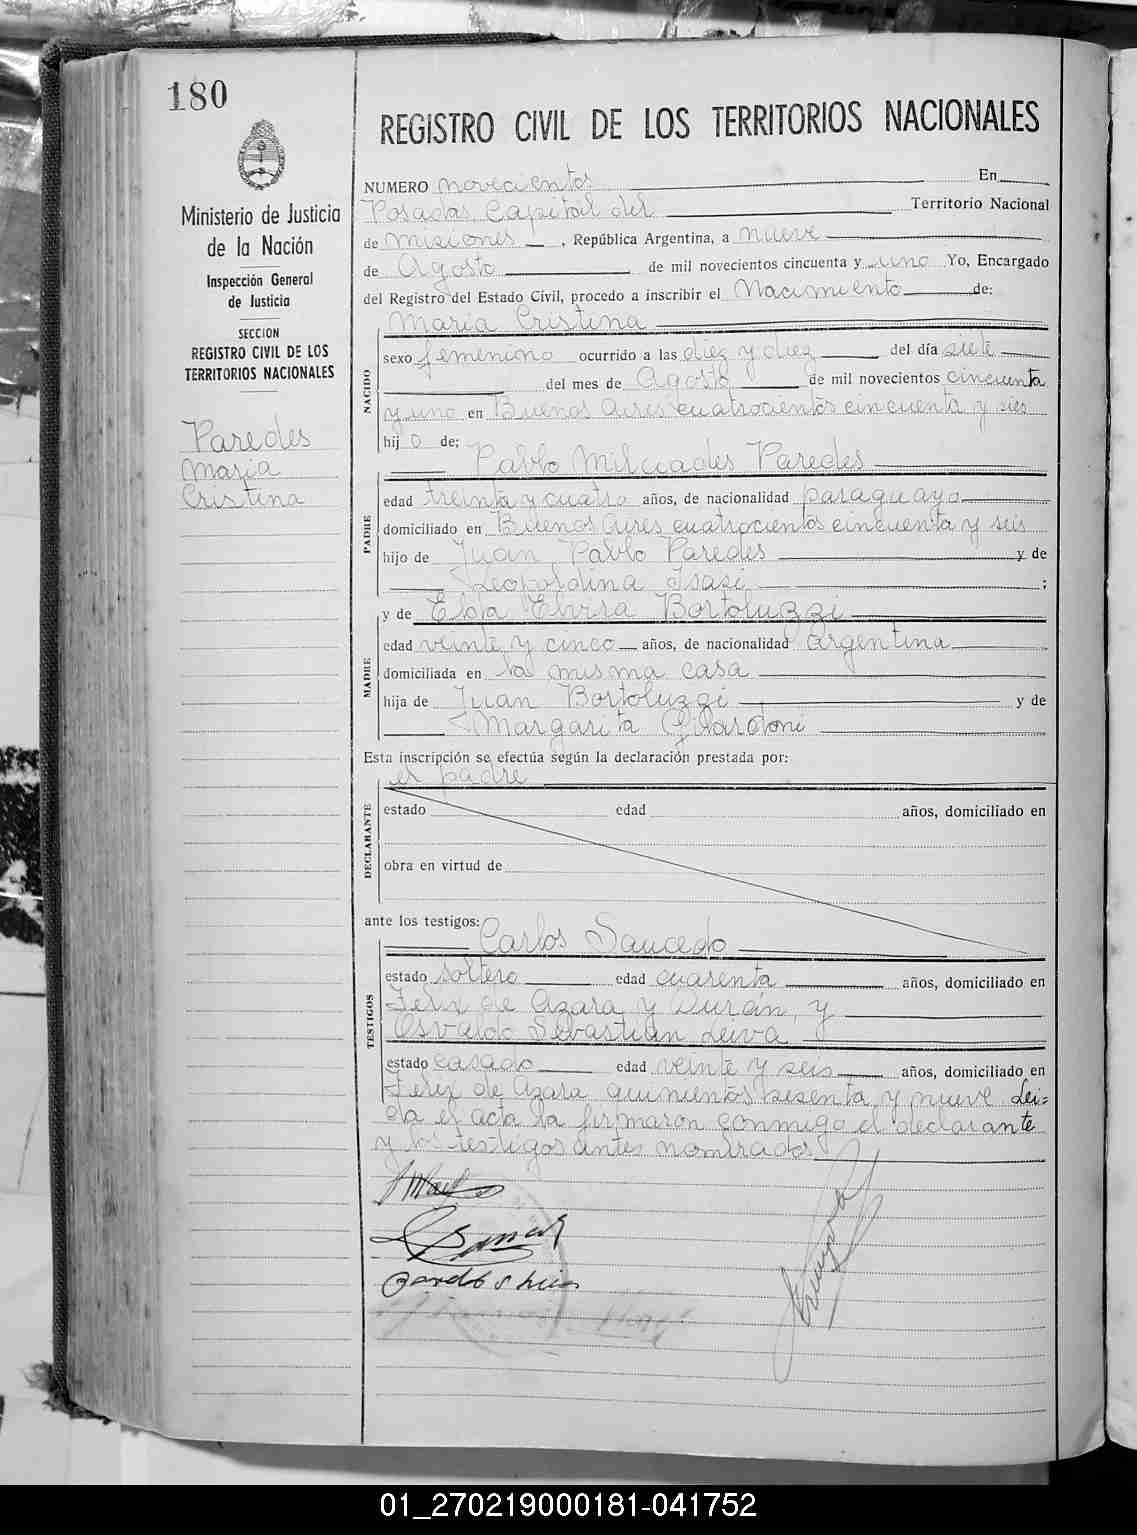 180
REGISTRO CIVIL DE LOS TERRITORIOS NACIONALES
Ministerio de Justicia
de la Nación
Inspección General
de Justicia
SECCION
REGISTRO CIVIL DE LOS
TERRITORIOS NACIONALES
Paredes
Maria
Cristina
NUMERO novecientos En
Posadas Capital del Territorio Nacional
de Misiones, República Argentina, a nueve
de Agosto de mil novecientos cincuenta y uno Yo, Encargado
del Registro del Estado Civil, procedo a inscribir el Nacimiento de:
Maria Cristina
NACIDO
sexo femenino ocurrido a las diez y diez del día siete
del mes de Agosto de mil novecientos cincuenta
y uno en Buenos Aires cuatrocientos cincuenta y seis
hij a de;
Pablo Milciades Paredes
PADRE
edad treinta y cuatro años, de nacionalidad paraguayo
domiciliado en Buenos Aires cuatrocientos cincuenta y seis
hijo de Juan Pablo Paredes y de
Leopoldina Isasi ;
y de Elsa Elvira Bortoluzzi
MADRE
edad veinte y cinco años, de nacionalidad argentina
domiciliada en la misma casa
hija de Juan Bortoluzzi y de
Margarita Gilardoni
Esta inscripción se efectúa según la declaración prestada por:
el padre
DECLARANTE
estado edad años, domiciliado en
obra en virtud de
ante los testigos:
Carlos Saucedo
TESTIGOS
estado soltero edad cuarenta años, domiciliado en
Felix de Azara y Durán, y
Osvaldo Sebastian Leiva
estado casado edad veinte y seis años, domiciliado en
Felix de Azara quinientos sesenta y nueve Lei=
da el acta la firmaron conmigo el declarante
y los testigos antes nombrados
01_270219000181-041752